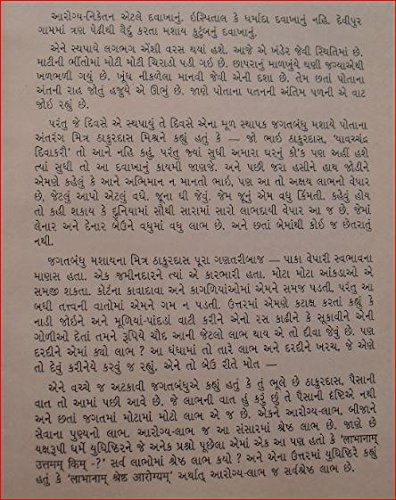 આરોગ્ય-નિકેતન એટલે દવાખાનું. ઇસ્પિતાલ કે ધર્માદા દવાખાનું નહિ. દેવીપુર
ગામમાં ત્રણ પેઢીથી વૈદું કરતા મશાય કુટુંબનું દવાખાનું.
એને સ્થપાયે લગભગ એંશી વરસ થયાં હશે. આજે એ ખંડેર જેવી સ્થિતિમાં છે.
માટીની ભીંતોમાં મોટી મોટી ચિરાડો પડી ગઈ છે. છાપરાનું માળખુંયે ઘણી જગ્યાએથી
ખળભળી ગયું છે. ખૂંધ નીકળેલા માનવી જેવી એની દશા છે. તેમ છતાં પોતાના
અંતની રાહ જોતું હજુયે એ ઊભું છે. જાણે પોતાના પતનની અંતિમ પળની એ વાટ
જોઈ રહ્યું છે.
પરંતુ જે દિવસે એ સ્થપાયું તે દિવસે એના મૂળ સ્થાપક જગતબંધુ મશાયે પોતાના
અંતરંગ મિત્ર ઠાકુરદાસ મિશ્રને કહ્યું હતું કે – જો ભાઈ ઠાકુરદાસ, 'યાવચ્ચંદ્ર
દિવાકરી' તો આને નહિ કહું, પરંતુ જ્યાં સુધી અમારા ઘરનું કો'ક પણ અહીં હશે
ત્યાં સુધી તો આ દવાખાનું કાયમી જાણજે. અને પછી જરા હસીને હાથ જોડીને
એમણે કહેલું કે આને અભિમાન ન માનતો ભાઈ, પણ આ તો અક્ષય લાભનો વેપાર
છે, જેટલું આપો એટલું વધે. જૂના ઘી જેવું, જેમ જૂનું એમ વધુ કિંમતી. કહેવું હોય
તો કહી શકાય કે દુનિયામાં સૌથી સારામાં સારો લાભદાયી વેપાર આ જ છે. જેમાં
લેનાર અને દેનાર બેઉને વધુમાં વધુ લાભ છે. અને છતાં બેમાંથી કોઈ જ છેતરાતું
નથી.
જગતબંધુ મશાયના મિત્ર ઠાકુરદાસ પૂરા ગણતરીબાજ — પાકા વેપારી સ્વભાવના
માણસ હતા. એક જમીનદારને ત્યાં એ કારભારી હતા. મોટા મોટા આંકડાઓ એ
સમજી શકતા. કોર્ટના કાવાદાવા અને કાગળિયાંઓમાં એમને સમજ પડતી. પરંતુ આ
બધી તત્ત્વની વાતોમાં એમને ગમ ન પડતી. ઉત્તરમાં એમણે કટાક્ષ કરતાં કહ્યું કે
નાડી જોઈને અને મૂળિયાં-પાંદડાં વાટી કરીને એનો રસ કાઢીને કે સૂકાવીને એની
ગોળીઓ દેતાં તમને રૂપિયે ચૌદ આની જેટલો લાભ થાય એ તો દીવા જેવું છે. પણ
દરદીને એમાં ક્યો લાભ ? આ ધંધામાં તો તારે લાભ અને દરદીને ખરચ, જે એણે
તો દેવું કરીનેયે કરવું જ રહ્યું, એને તો બેઉ રીતે મોત —
એને વચ્ચે જ અટકાવી જગતબંધુએ કહ્યું હતું કે તું ભૂલે છે ઠાકુરદાસ, પૈસાની
વાત તો આમાં પછી આવે છે. જે લાભની વાત હું કરું છું તે પૈસાની દૃષ્ટિએ નથી
અને છતાં જગતમાં મોટામાં મોટો લાભ એ જ છે. એકને આરોગ્ય-લાભ, બીજાને
સેવાના પુણ્યનો લાભ. આરોગ્ય-લાભ જ આ સંસારમાં શ્રેષ્ઠ લાભ છે. જાણે છે
યક્ષરૂપી ધર્મે યુધિષ્ઠિરને જે અનેક પ્રશ્નો પૂછેલા એમાં એક આ પણ હતો કે 'લાભાનામ્
ઉત્તમમ્ કિમ્ -?' સર્વ લાભોમાં શ્રેષ્ઠ લાભ કયો ? અને એના ઉત્તરમાં યુધિષ્ઠિરે કહ્યું
હતું કે 'લાભાનામ્ શ્રેષ્ઠ આરોગ્યમ્' અર્થાત્ આરોગ્ય-લાભ જ સર્વશ્રેષ્ઠ લાભ છે.